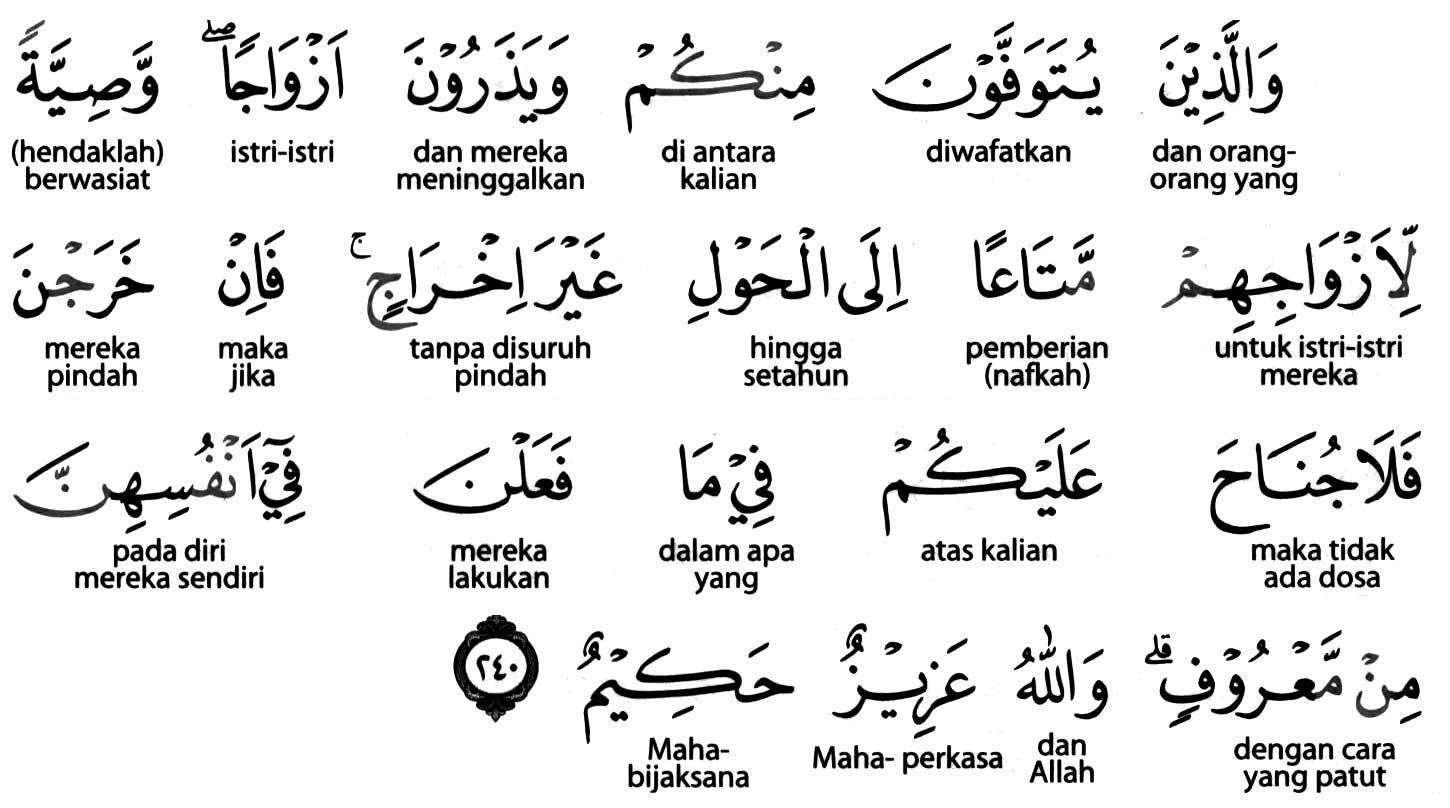 وَالَّذِيْنَ يُتَوَفَّوْنَ مِنْكُمْ وَيَذَرُوْنَ اَزْوَاجًاۖ وَّصِيَّةً
dan orang-orang yang diwafatkan di antara kalian dan mereka meninggalkan istri-istri (hendaklah) berwasiat
لِّاَزْوَاجِهِمْ مَّتَاعًا اِلَى الْحَوْلِ غَيْرَ اِخْرَاجٍۚ فَاِنْ خَرَجْنَ
untuk istri-istri mereka pemberian (nafkah) hingga setahun tanpa disuruh pindah maka jika mereka pindah
فَلَا جُنَاحَ عَلَيْكُمْ فِيْ مَا فَعَلْنَ فِيْٓ اَنْفُسِهِنَّ
maka tidak ada dosa atas kalian dalam apa yang mereka lakukan pada diri mereka sendiri
مِنْ مَّعْرُوْفٍۗ وَاللّٰهُ عَزِيْزٌ حَكِيْمٌ ٢٤٠
dengan cara yang patut dan Allah Maha- perkasa Maha-bijaksana